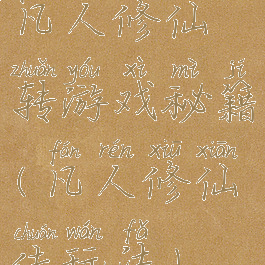 凡人修仙
zhuǎn yóu xì mì jí
转游戏秘籍
fán rén xiu xiān
(凡人修仙
chuán wán fǎ
传玩法)